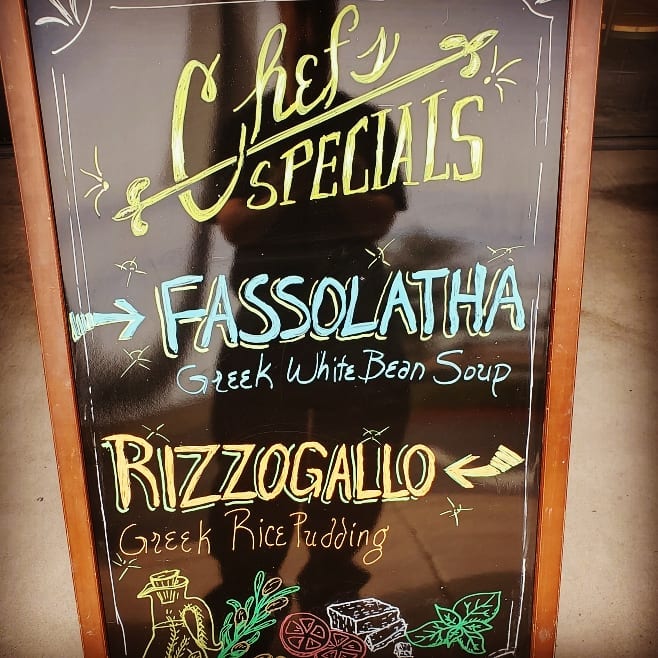 Chefs
SPECIALS
FASSOLATHA
Greek White Bean Soup
RIZZOGALLO
Greek Rice Pudding